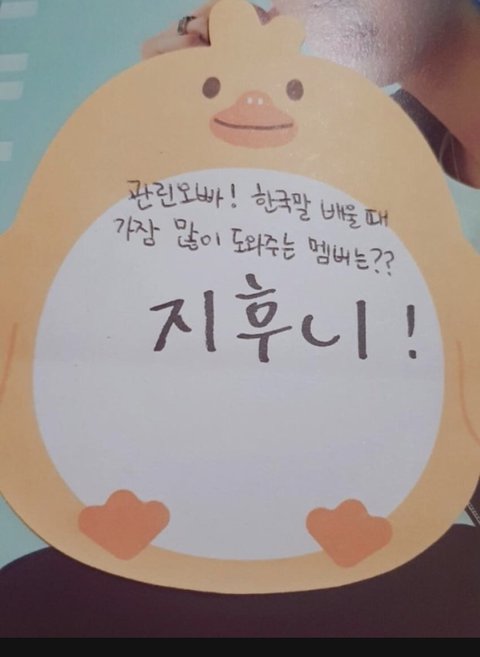 관린오빠! 한국말 배울 때
가잠 많이 도와주는 멤버는??
지후니!